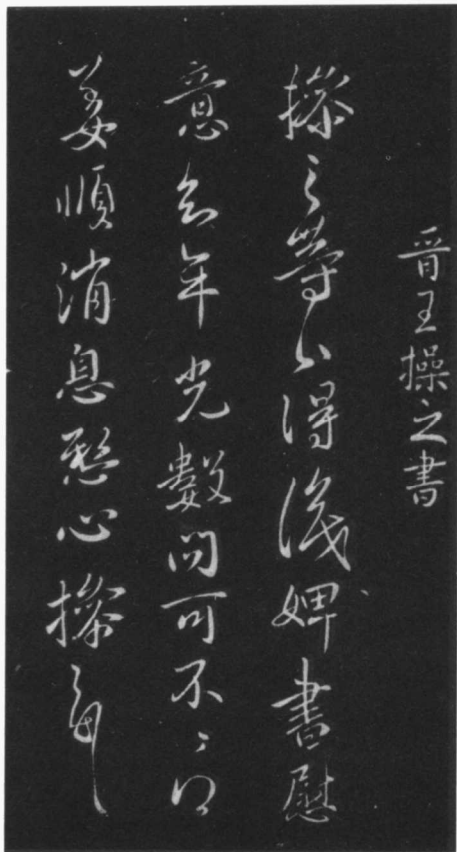 晉王操之書
操之等得識婢書慰
意知年光數問可不〻得
姜順消息愁心操之